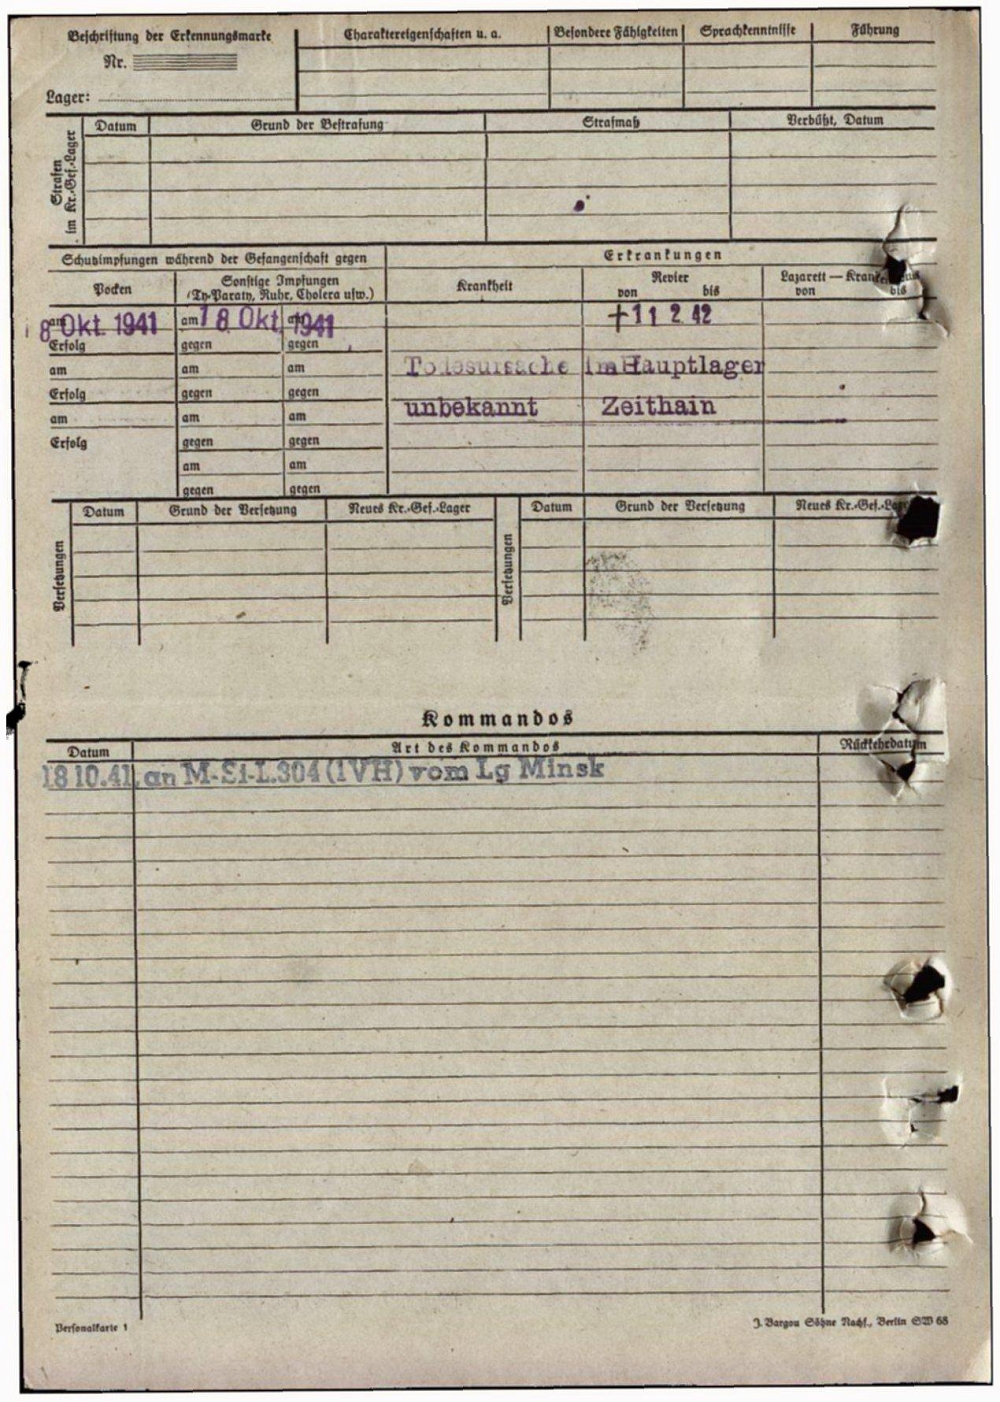 Beschriftung der Erkennungsmarke
Nr.
Lager:
Charaktereigenschaften u. a.
Besondere Fähigkeiten
Sprachkenntnisse
Führung
Strafen im Kr.-Gef.-Lager
Datum
Grund der Bestrafung
Strafmaß
Verbüßt, Datum
Schutzimpfungen während der Gefangenschaft gegen
Erkrankungen
Pocken
Sonstige Impfungen
(Ty-Paraty, Ruhr, Cholera usw.)
Krankheit
Revier
von bis
Lazarett —
von bis
am 18 Okt. 1941
am 18 Okt. 1941
am
† 11 2 42
Erfolg gegen gegen
am am am
Todesursache im Hauptlager
Erfolg gegen gegen
am am am
unbekannt Zeithain
Erfolg gegen gegen
am am
gegen gegen
Versetzungen
Datum
Grund der Versetzung
Neues Kr.-Gef.-Lager
Versetzungen
Datum
Grund der Versetzung
Neues Kr.-Gef.-Lager
Kommandos
Datum
Art des Kommandos
Rückkehrdatum
18 10.41. an M-St-L.304 (IVH) vom Lg Minsk
Personalkarte 1
J. Bargou Söhne Nachf., Berlin SW 68